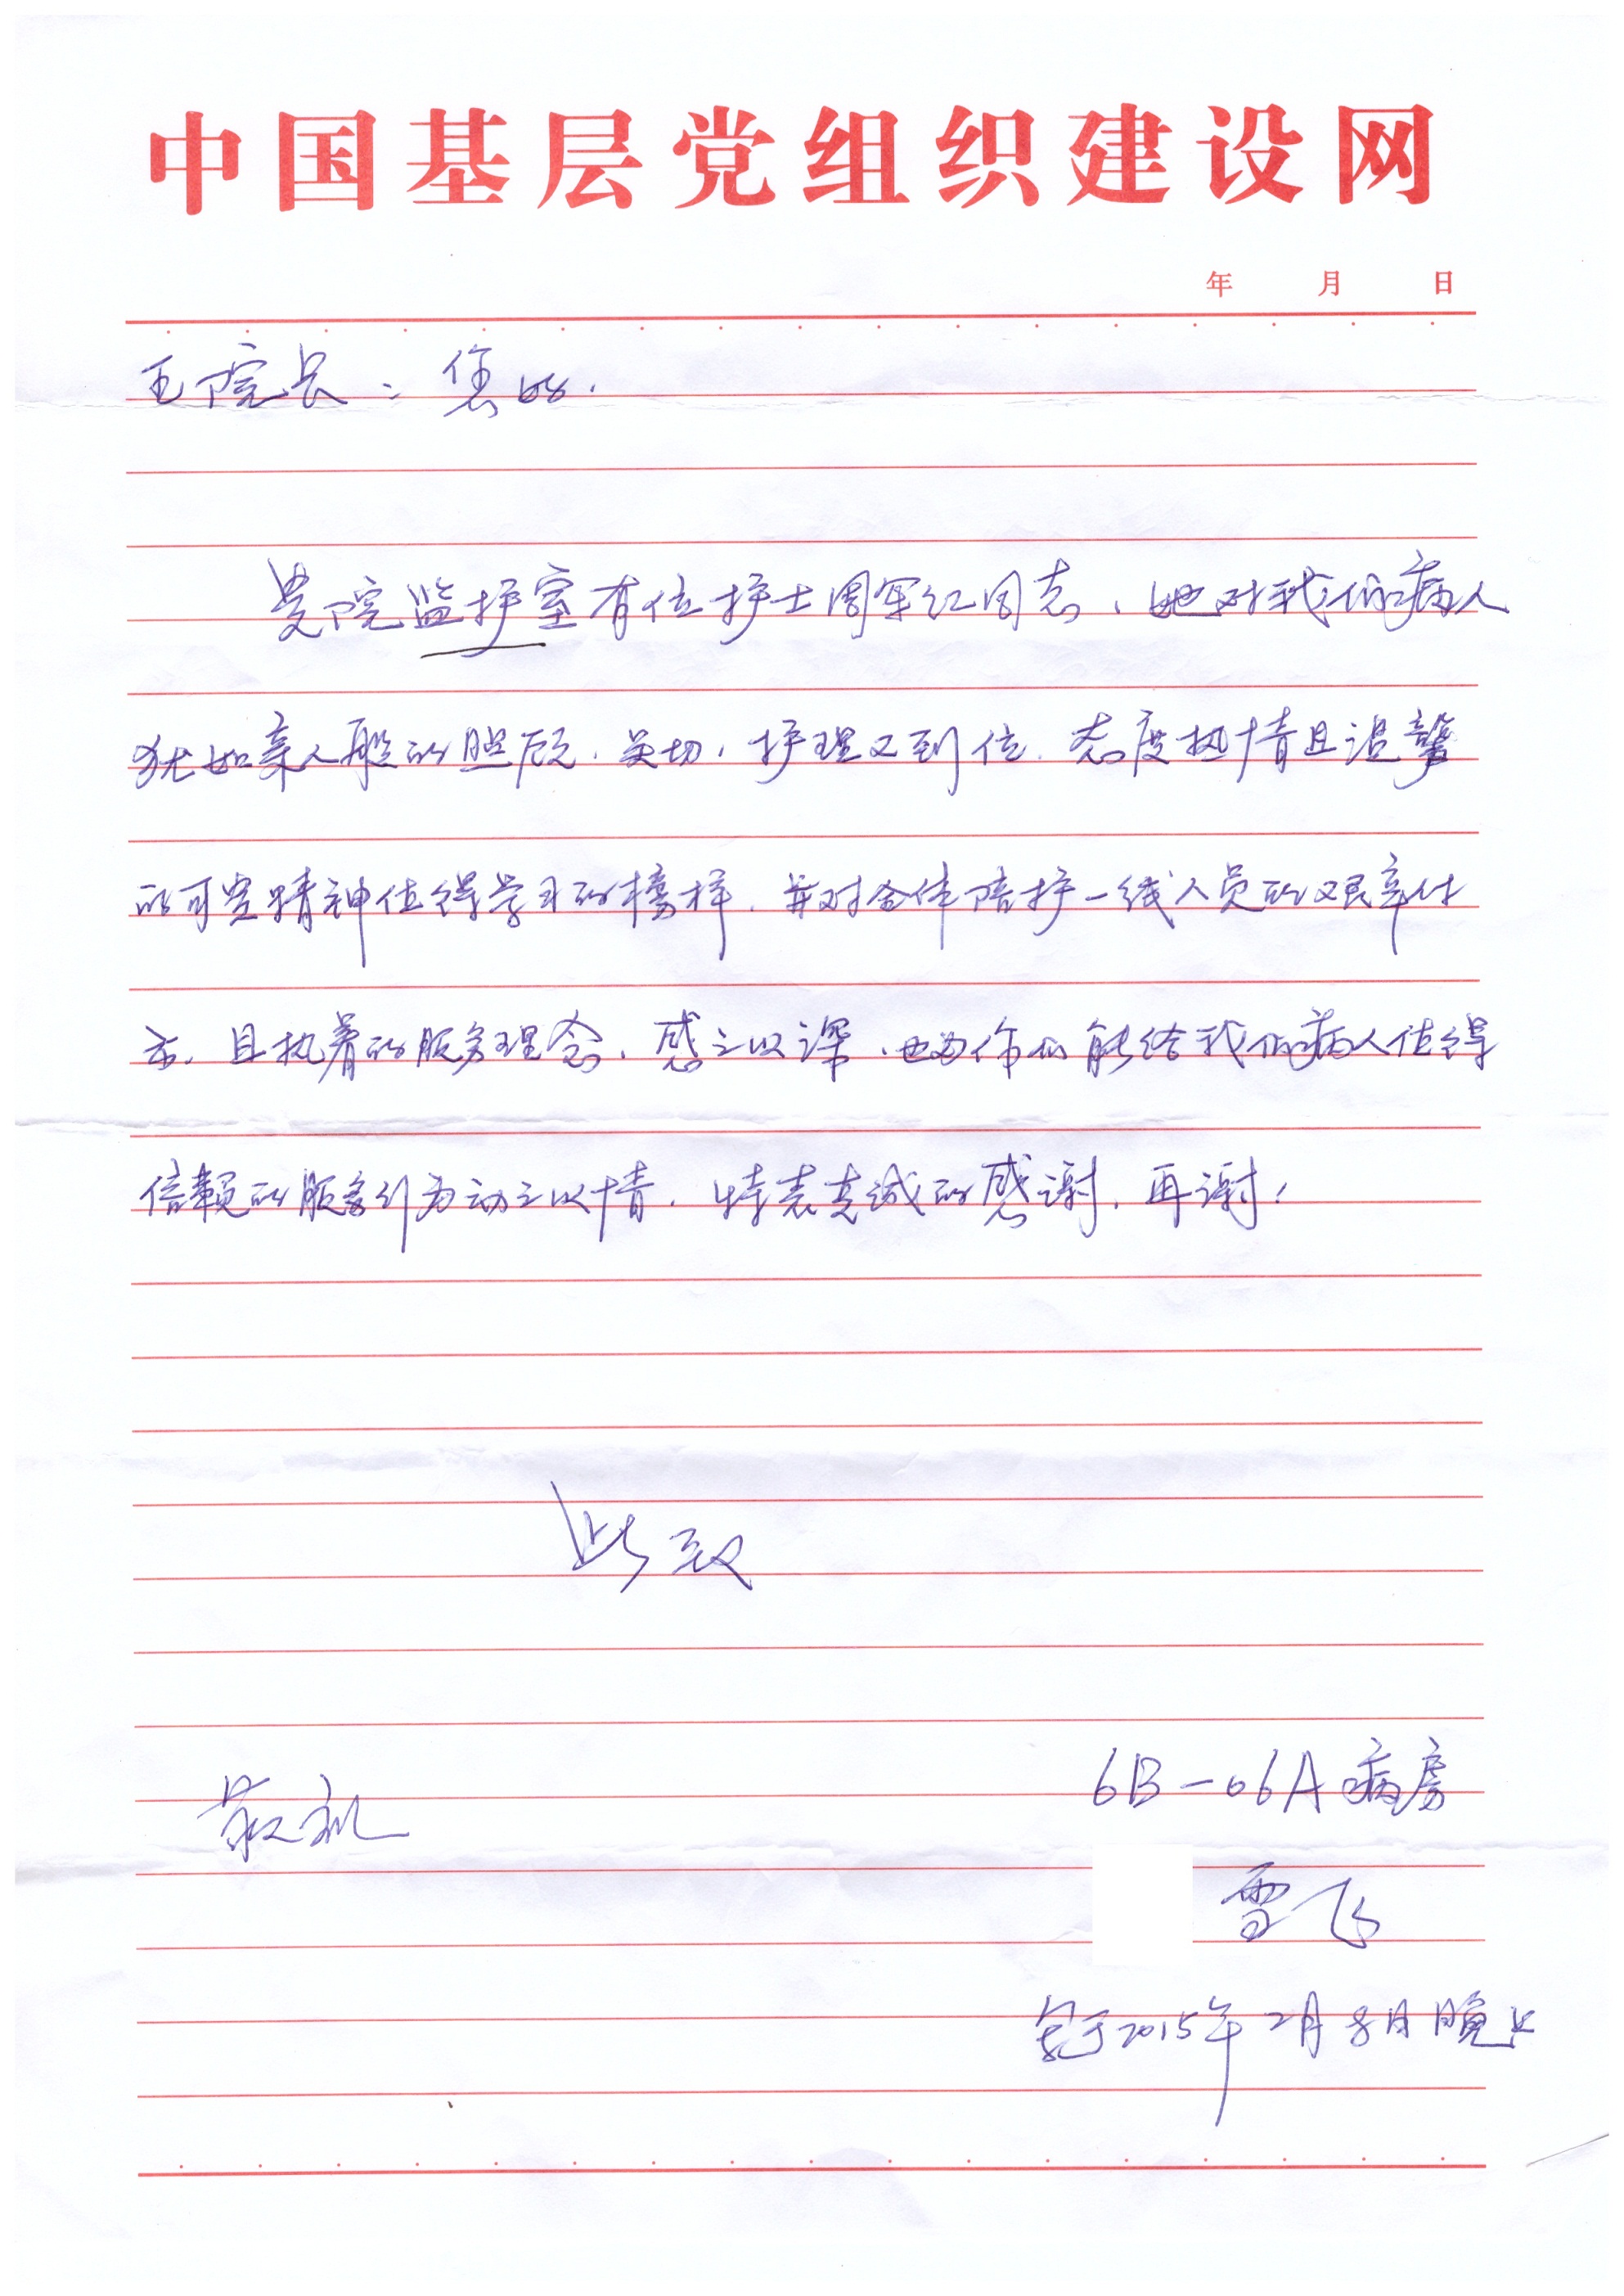 中国基层党组织建设网
年 月 日
王院长：您好.
贵院监护室有位护士周军红同志，她对我们病人
犹如亲人般的照顾.关切，护理又到位.态度热情且温馨
的可贵精神值得学习的榜样.并对全体陪护一线人员的艰辛付
出.且执着的服务理念，感之以深，也为你们能给我们病人值得
信赖的服务行为动之以情.特表真诚的感谢，再谢！
此致
敬礼
6B-06A病房
雪飞
于2015年2月8日晚上